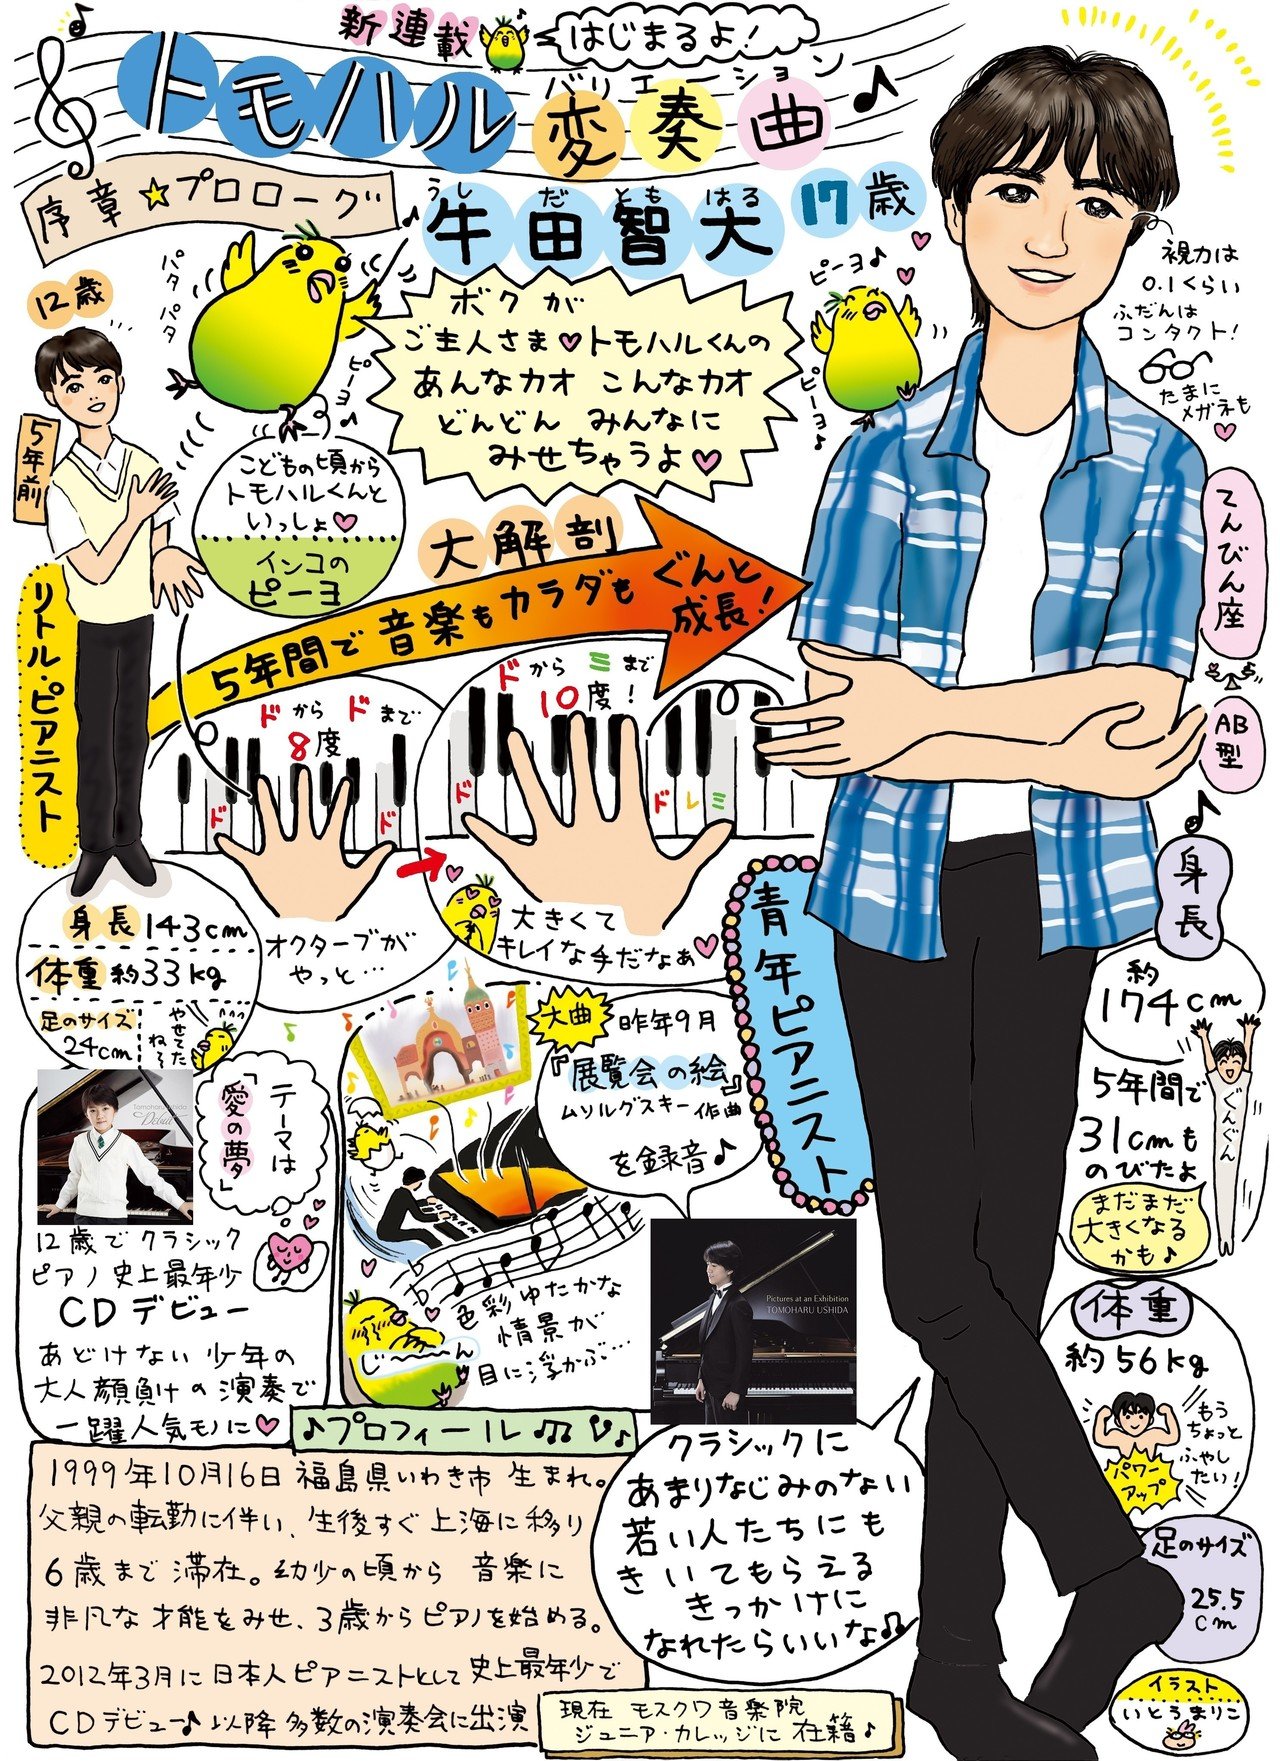 新連載
はじまるよ!
バリエーション
トモハル変奏曲
序章☆プロローグ
うし だ とも はる
牛田智大 17歳
パタパタ
ピーヨ♪
ピーヨ♪
ピーヨ♪
ボクが
ご主人さま♥トモハルくんの
あんなカオ こんなカオ
どんどん みんなに
みせちゃうよ♥
視力は
0.1くらい
ふだんは
コンタクト!
たまに
メガネも
12歳
5年前
こどもの頃から
トモハルくんと
いっしょ♥
インコの
ピーヨ
大解剖
5年間で音楽もカラダもぐんと
成長!
てんびん座
AB
型
リトル・ピアニスト
ドからドまで
8度
ド
ド
オクターブが
やっと…
ドからミまで
10度!
ド
ドレミ
大きくて
キレイな手だなぁ♥
青年ピアニスト
身長 143cm
体重 約33kg
足のサイズ
24cm
やせてた
ねぇ
身長
約
174cm
5年間で
31cmも
のびたよ
ぐんぐん
まだまだ
大きくなる
かも♪
体重
約56kg
もう
ちょっと
ふやし
たい!
パワー
アップ
足のサイズ
25.5
cm
テーマは
「愛の夢」
Tomoharu Ushida
Debut
12歳でクラシック
ピアノ史上最年少
CDデビュー
あどけない少年の
大人顔負けの演奏で
一躍人気モノに♥
大曲
昨年9月
『展覧会の絵』
ムソルグスキー作曲
を録音♪
色彩ゆたかな
情景が
目に浮かぶ…
じ〜〜ん
Pictures at an Exhibition
TOMOHARU USHIDA
♪プロフィール♫
1999年10月16日 福島県いわき市 生まれ。
父親の転勤に伴い、生後すぐ上海に移り
6歳まで滞在。幼少の頃から 音楽に
非凡な才能をみせ、3歳からピアノを始める。
2012年3月に日本人ピアニストとして史上最年少で
CDデビュー♪以降多数の演奏会に出演
現在 モスクワ音楽院
ジュニア・カレッジに在籍♪
クラシックに
あまりなじみのない
若い人たちにも
きいてもらえる
きっかけに
なれたらいいな♫
イラスト
いとうまりこ